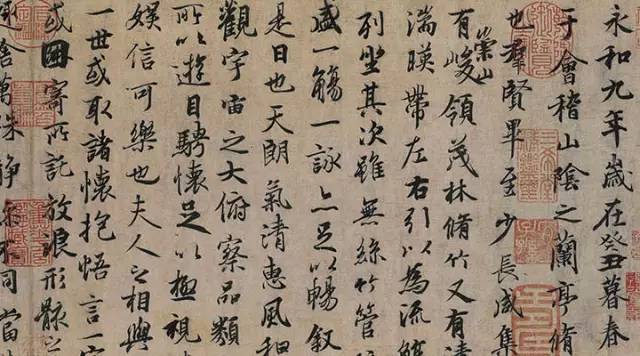 永和九年歲在癸丑暮春
于會稽山陰之蘭亭脩
也羣賢畢至少長咸集
有崇山峻領茂林脩竹又有清
湍暎帶左右引以為流
列坐其次雖無絲竹管
盛一觴一詠亦足以暢叙
是日也天朗氣清惠風和
觀宇宙之大俯察品類
所以遊目騁懷足以極視
娛信可樂也夫人之相與
一世或取諸懷抱悟言一
或因寄所託放浪形骸之
舍萬殊靜不同當